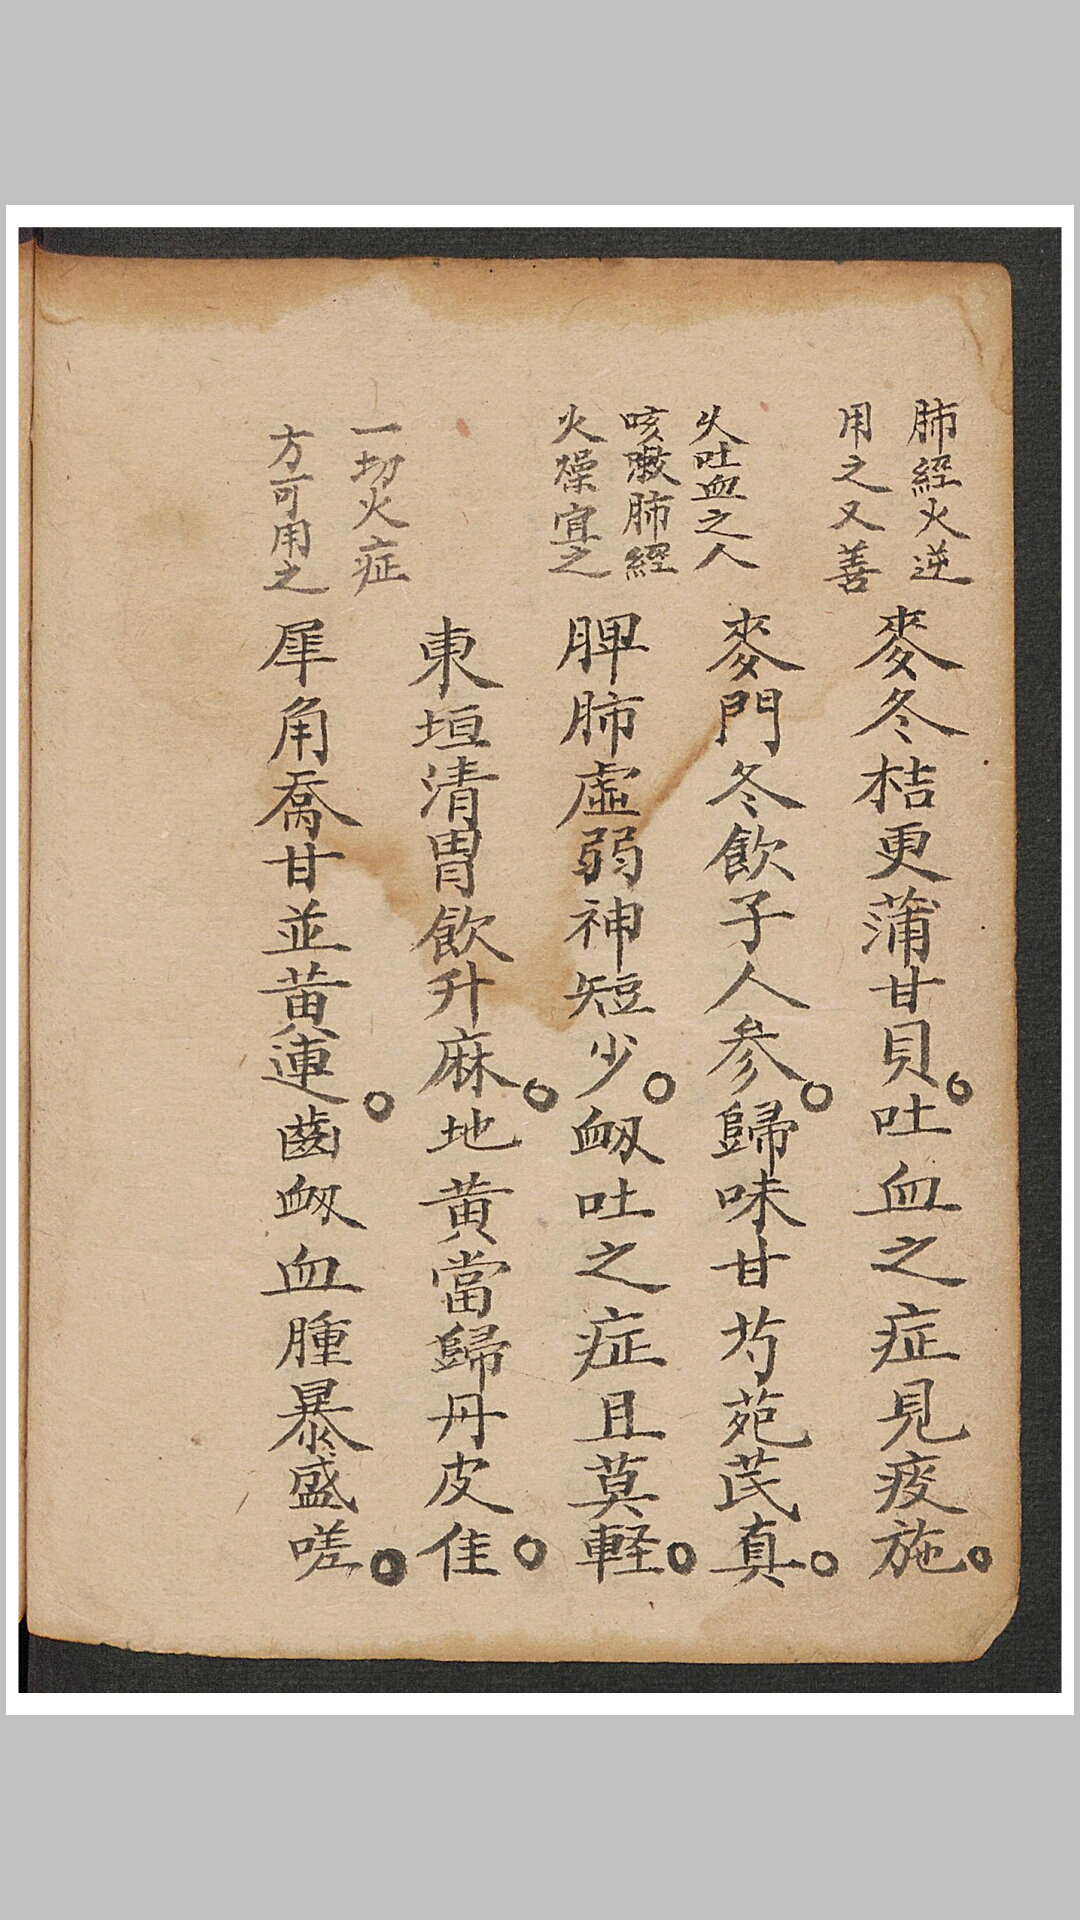 肺經火逆
用之又善
麥冬桔更蒲甘貝。吐血之症見疫施。
火吐血之人
麥門冬飲子人參。歸味甘芍苑芪真。
咳嗽肺經
火燥宜之
脾肺虛弱神短少。衂吐之症且莫軽。
東垣清胃飲升麻。地黄當歸丹皮佳。
一切火症
方可用之
犀角喬甘並黄連。齒衂血腫暴盛嗟。